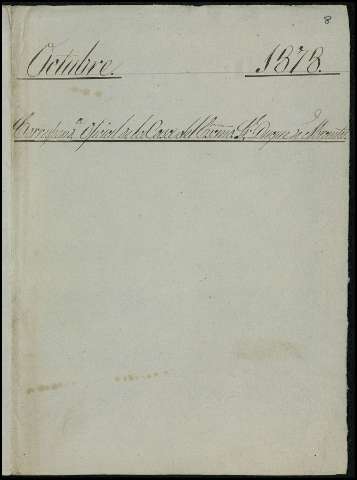 8
Octubre. 1878.
Correspond.ª Oficial de la Casa del Excmo. Sr. Duque de